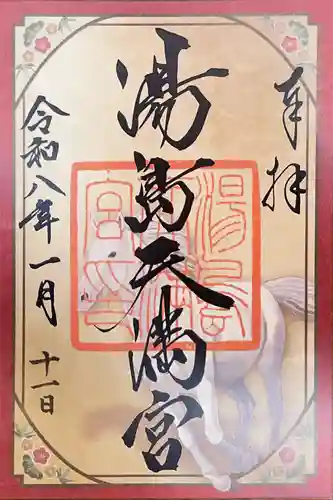 奉拝
湯島天満宮
湯島天満宮印
令和八年一月
十一日